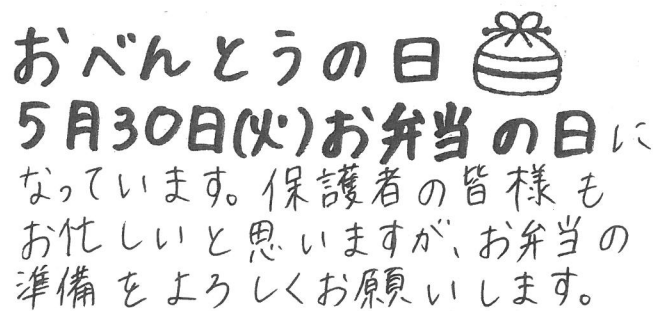 おべんとうの日
5月30日(火)お弁当の日に
なっています。保護者の皆様も
お忙しいと思いますが、お弁当の
準備をよろしくお願いします。